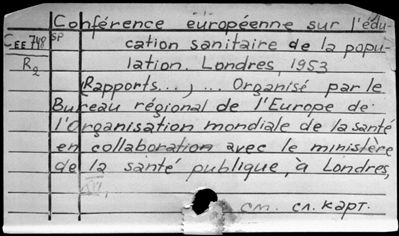 Conférence européenne sur l'édu-
CEE 748 SP cation sanitaire de la popu-
R2 lation. Londres, 1953
(Rapports..., ... Organisé par le
Bureau régional de l'Europe de
l'Organisation mondiale de la santé
en collaboration avec le ministère
de la santé publique, à Londres,
см. сл. карт.